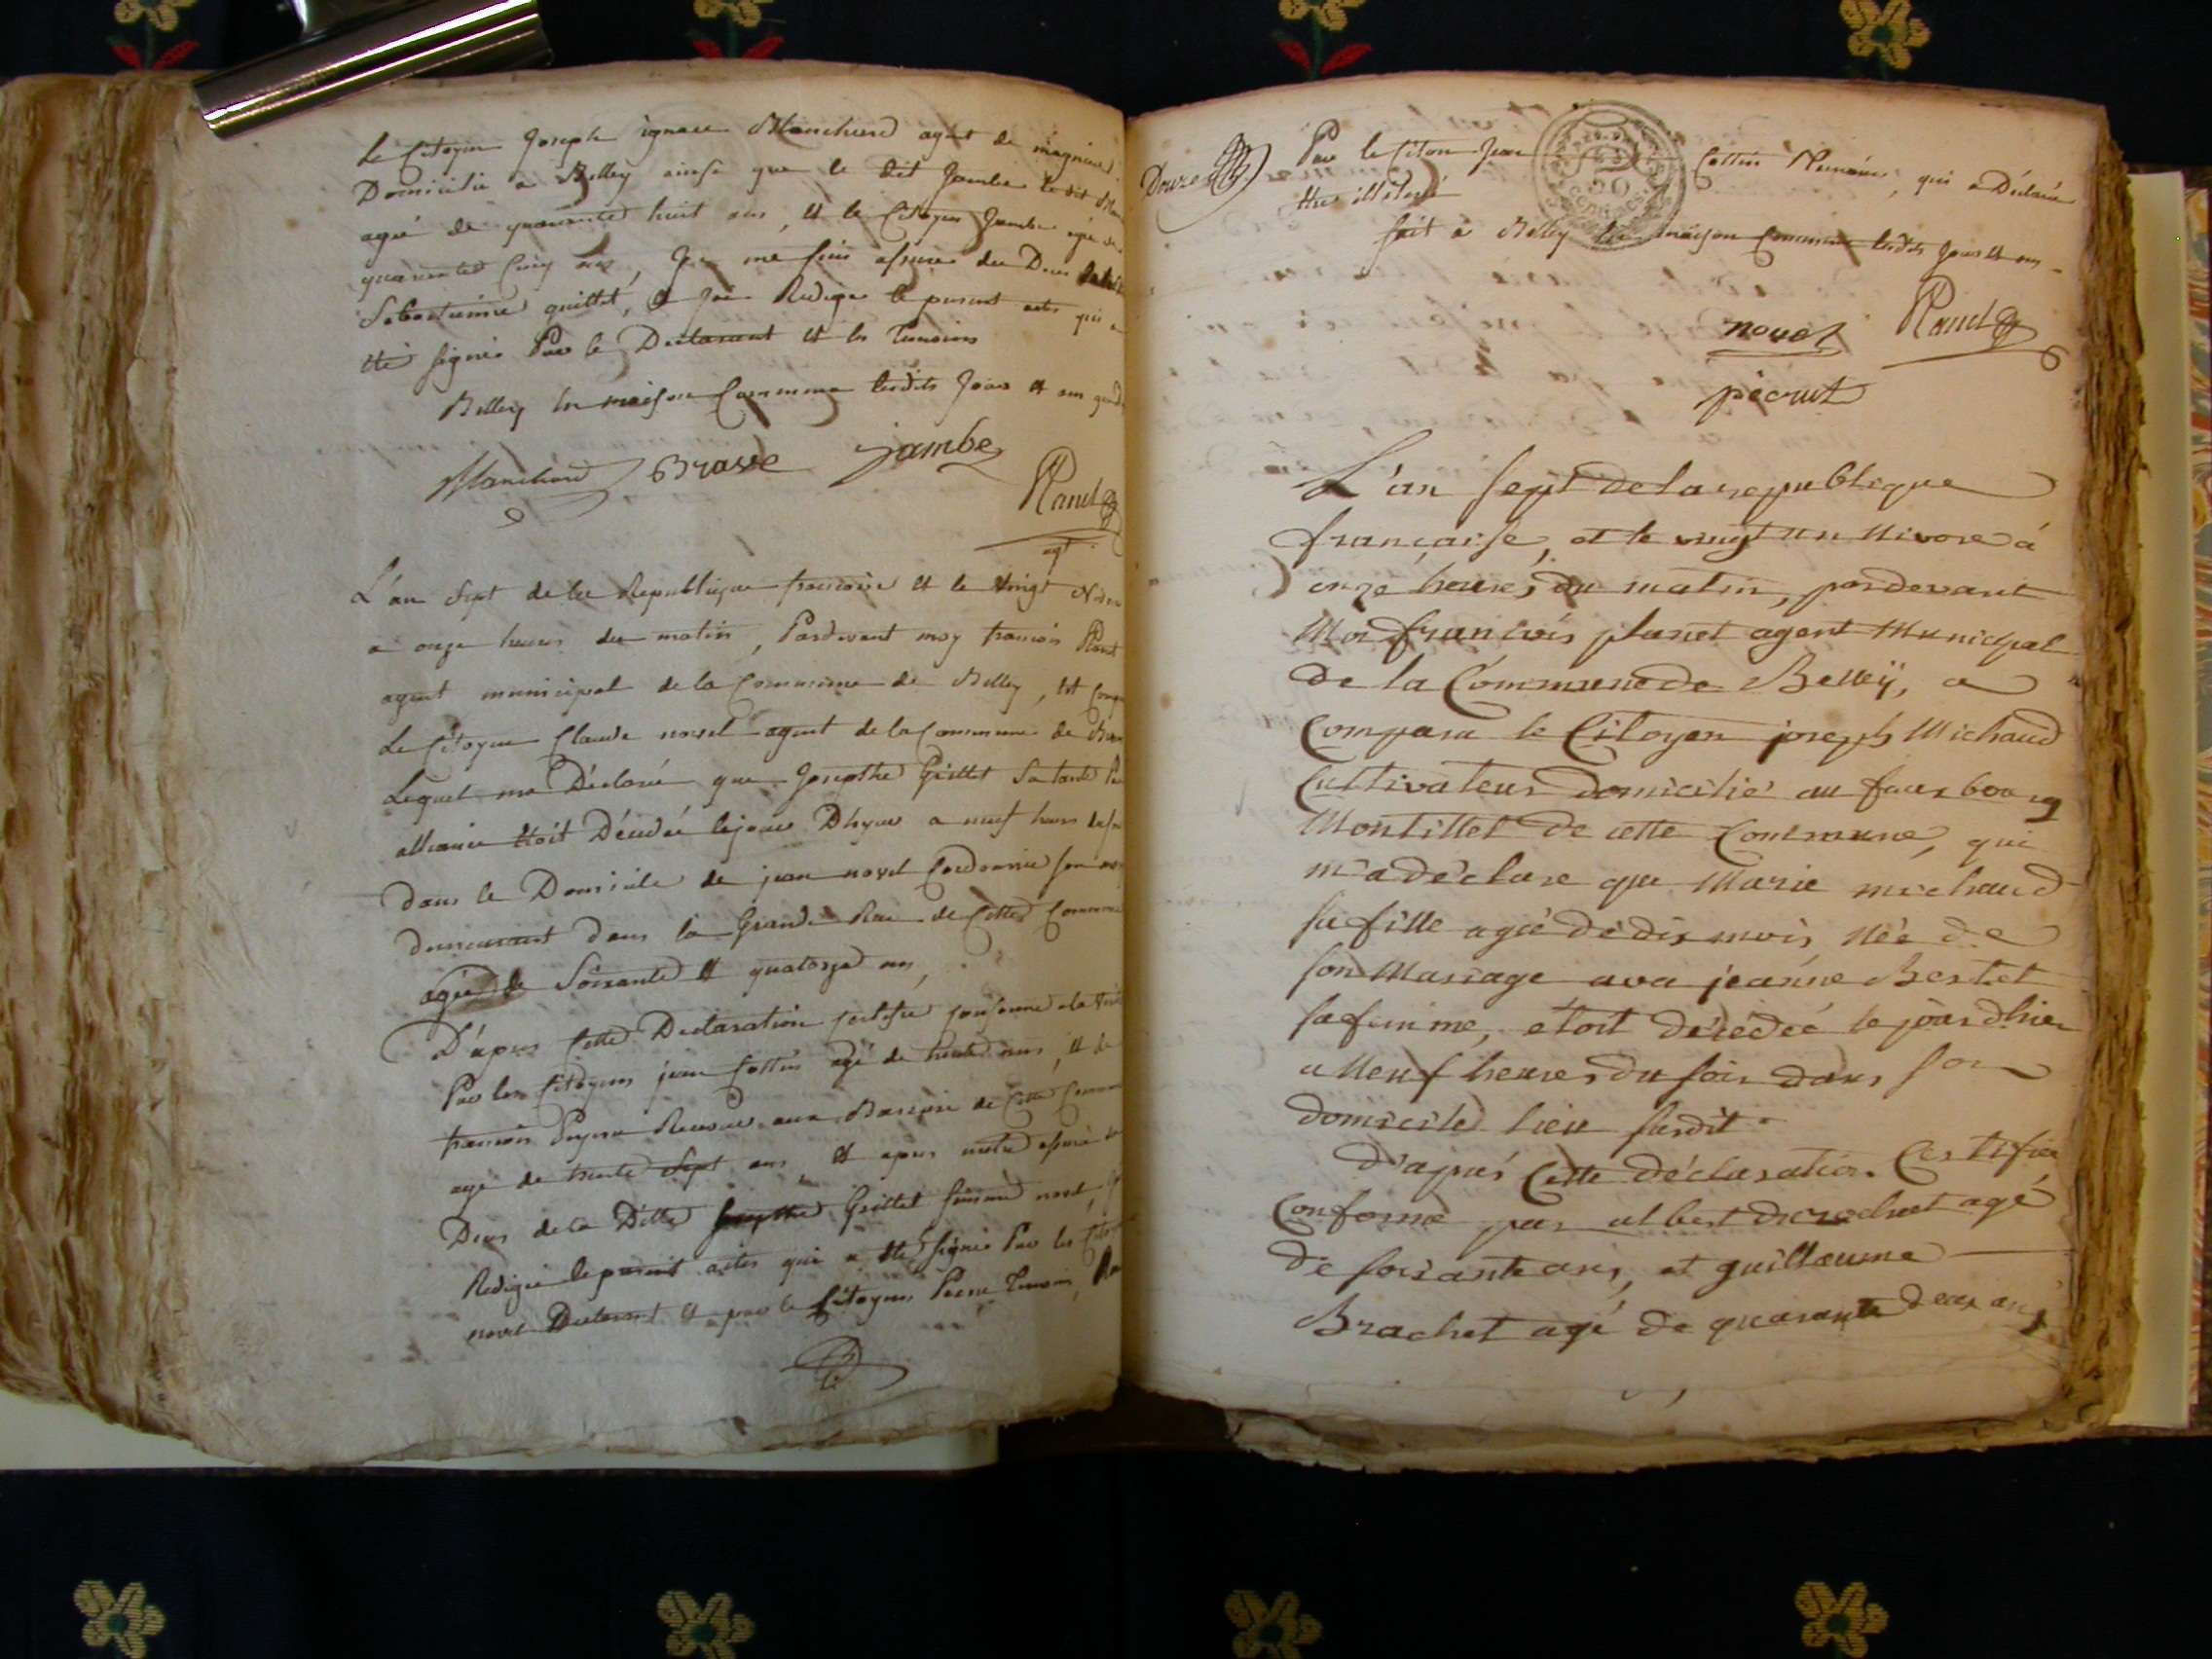 Le Citoyen Joseph ignace Blanchard agent de magnieu
Domicilié a Belley ainsi que le dit Jambe le dit
agé de quarante huit ans, et le Citoyen Jambe agé de
quarante Cinq ans, Je me suis assuré du Deces
Sebastienne quillet, et J'ai Redigé le present acte qui a
été signé Par le Declarant et les Temoins
Belley En maison Commune lesdits Jour et an
Blanchard Brasse jambe
Planet
agt
L'an Sept de la Republique francoise et le vingt
a onze heures du matin, Pardevant moy francois Planet
agent municipal de la Commune de Belley, est
Le Citoyen Claude novel agent de la Commune de
Lequel ma Déclaré que Josephte Grillet Sa tante
alliance étoit Décédée lejour Dhyer a neuf heures
dans le Domicile de jean novel Cordonnier son
demeurant dans la Grande Rue de Cette Commune
agée de Soixante et quatorze ans,
D'apres Cette Declaration
Par les Citoyens jean Cottin agé de trente ans, et
francois Receveur aux Barriere de Cette Commune
agé de trente Sept ans, et apres
Deces de la Ditte Josephte Grillet femme novel,
Redigé le present acte qui a été signé Par les
novel Declarant et par le Citoyen Temoin,
Douze Par le Citoen Jean Cottin, qui a Déclaré
être illiteré
fait a Belley En maison Commune lesdits Jour et an
novel Planet
pecrut
L'an sept de la republique
francaise, et le vingt un nivose á
onze heures du matin, pardevant
Moi francois planet agent Municipal
de la Commune de Belleÿ, a
Comparu le Citoyen joseph Michaud
Cultivateur domicilié au fauxbourg
Montillet de cette Commune, qui
m'a déclaré que Marie michaud
sa fille agée de dix mois née de
son Mariage avec jeanne Bertet
sa femme, étoit décédée le jour dhier
a Neuf heures du soir dans son
domicile lieu susdit.
D'aprés Cette déclaration Certifiée
Conforme par albert agé
de soixante ans, et guillaume
Brachet agé de quarante deux ans